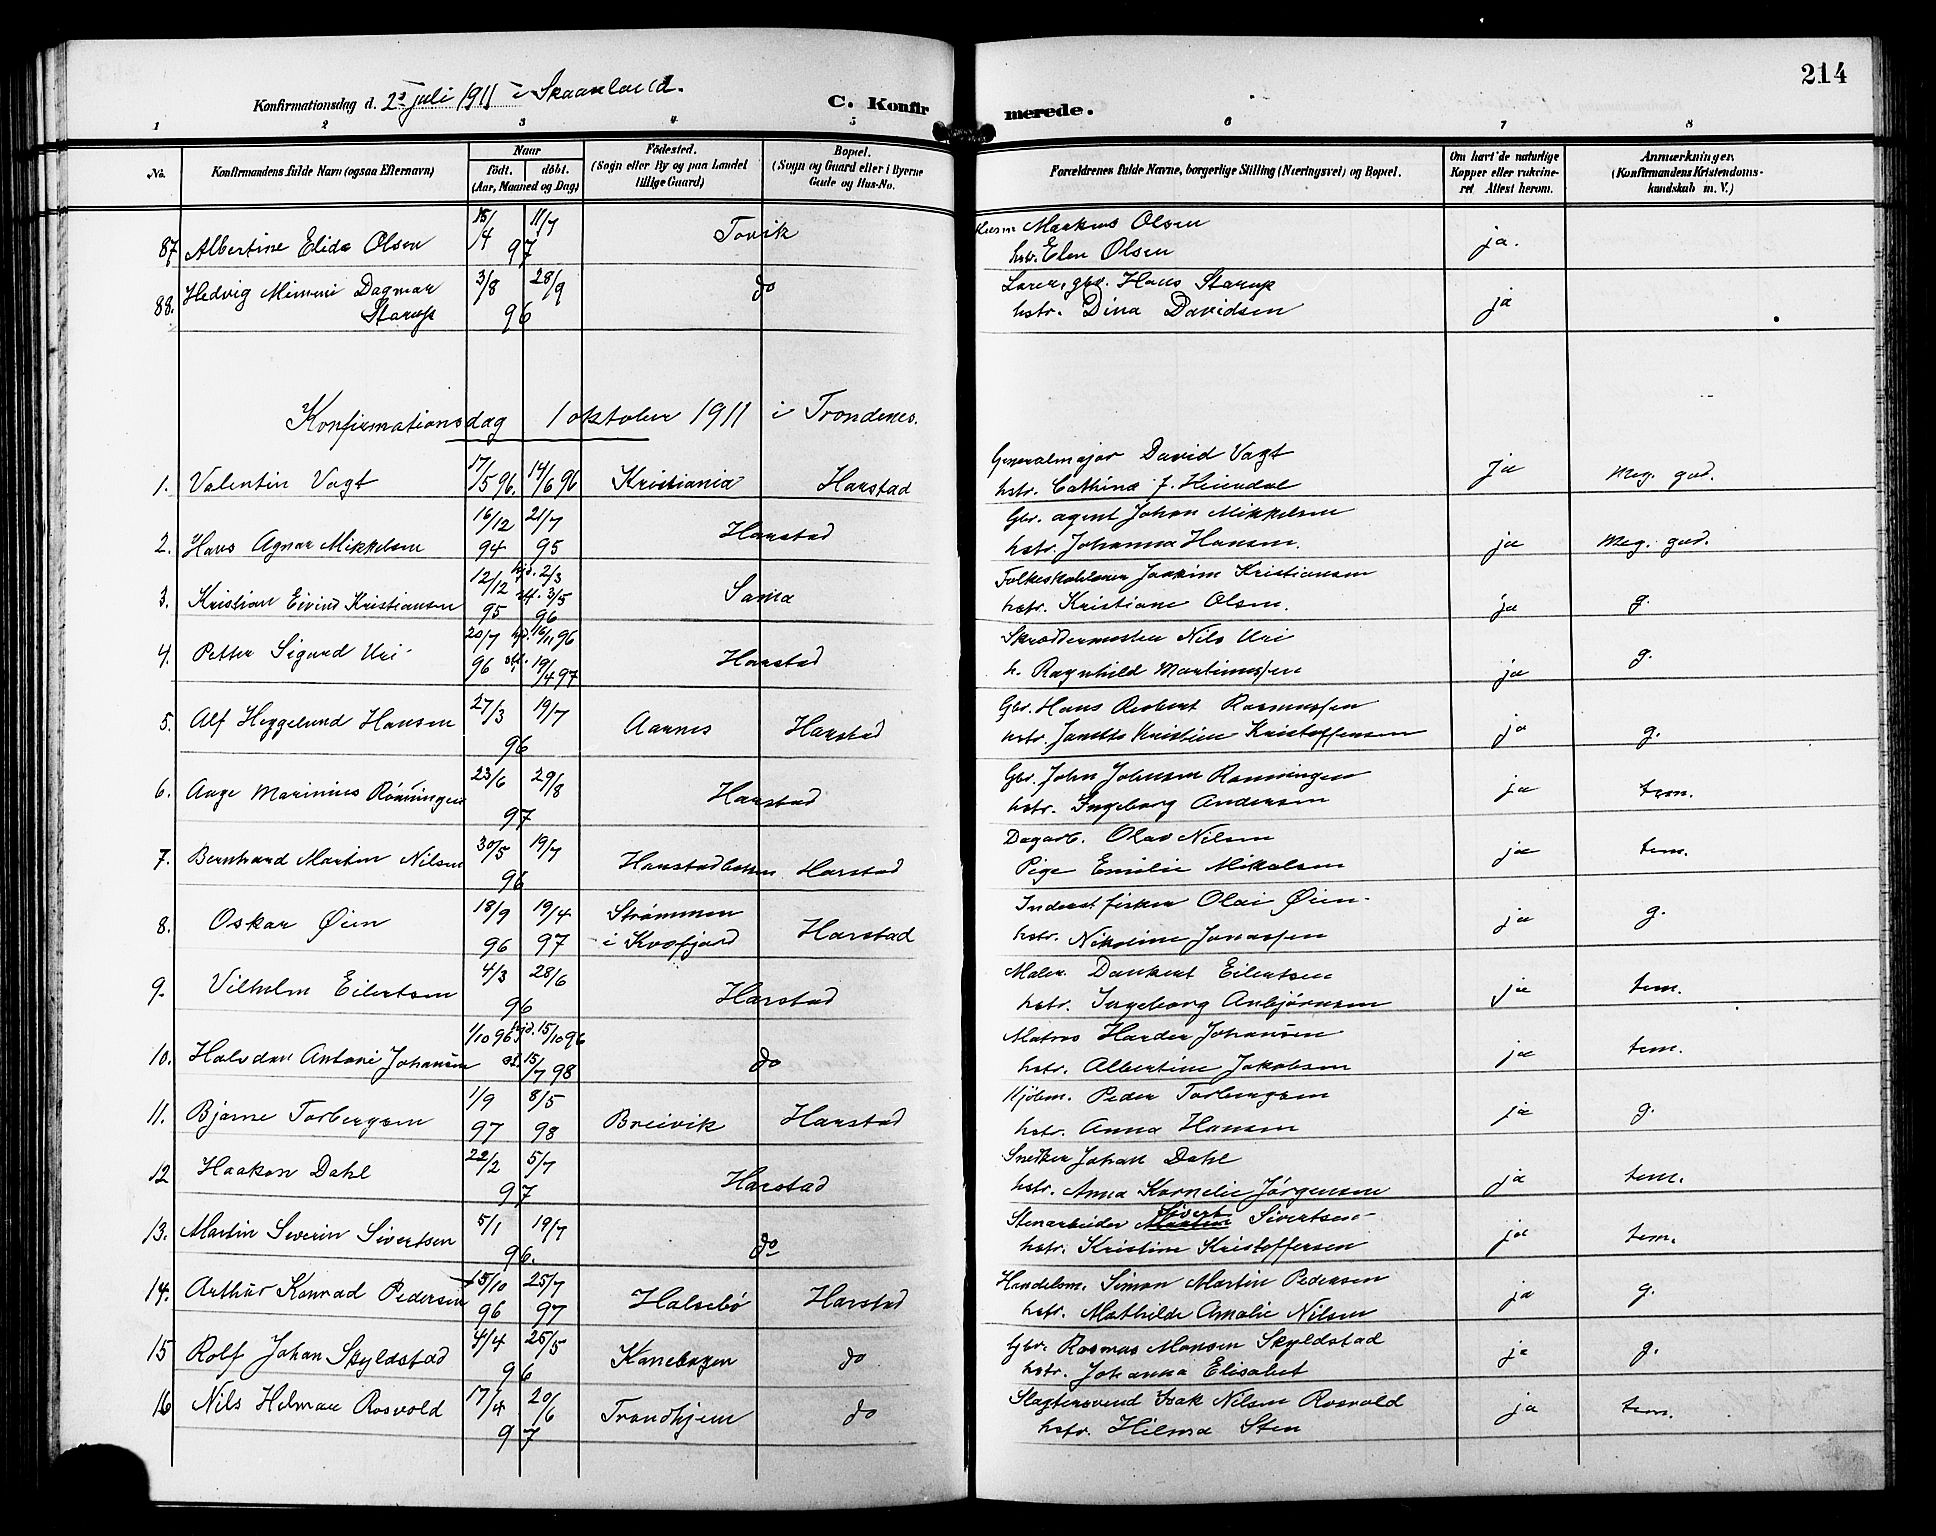 214
Konfirmationsdag d. 23 juli 1911 i Skaanland.
C. Konfirmerede.
1 2 3 4 5 6 7 8
No.
Konfirmandens fulde Navn (ogsaa Efternavn)
Naar
født. døbt.
(Aar, Maaned og Dag)
Fødested.
(Sogn eller By og paa Landet
tillige Gaard)
Bopæl.
(Sogn og Gaard eller i Byerne
Gade og Hus-No.
Forældrenes fulde Navne, borgerlige Stilling (Næringsvei) og Bopæl.
Om havt de naturlige
Kopper eller vakcine-
ret Attest herom.
Anmærkninger.
(Konfirmandens Kristendoms-
kundskab m. V.)
87 Albertine Elida Olsen 15/4 11/7 97 Tovik Markus Olsen
hstr. Elen Olsen ja.
88. Hedvig Mimmi Dagmar
Starup 3/8 28/9 96 do Lærer, gbr. Hans Starup
hstr. Dina Davidsen ja
Konfirmationsdag 1 oktober 1911 i Trondenes.
1. Valentin Vagt 17/5 96. 14/6 96 Kristiania Harstad Generalmajor David Vagt
hstr. Cathina J. Heiendal ja Meg. god.
2. Hans Agnar Mikkelsen 16/12 94 21/7 95 Harstad Gbr. agent Johan Mikkelsen
hstr. Johanna Hansen. ja Meg. god.
3. Kristian Eivind Kristiansen 12/12 95 hjd. 2/3 stf. 3/5 96 Sama Folkeskolelærer Joakim Kristiansen
hstr. Kristiane Olsen. ja g.
4. Petter Sigurd Uri 20/7 96 hjd. 16/11 96 stf. 19/4 97 Harstad Skræddermester Nils Uri
h. Ragnhild Martinussen ja g.
5. Alf Heggelund Hansen 27/3 19/7 96 Aarnes Harstad Gbr. Hans Robert Rasmussen
hstr. Janette Kristine Kristoffersen ja g.
6. Aage Marinius Rønningen 23/6 29/8 97 Harstad Gbr. John Johnsen Rønningen
hstr. Ingeborg Andersen ja tem.
7. Bernhard Martin Nilsen 30/5 19/7 96 Harstadbotten Harstad Dagarb. Olav Nilsen
Pige Emilie Mikalsen ja tem.
8. Oskar Øien 18/9 96 19/4 97 Strømmen
i Kvæfjord Harstad Inderst fisker Olai Øien
hstr. Nikoline Jonassen ja g.
9. Vilhelm Eilertsen 4/3 28/6 96 Harstad Maler Dankert Eilertsen
hstr. Ingeborg Anbjørnsen ja tem.
10. Halvdan Antoni Johansen 1/10 96 hjd. 15/10 96 stf. 15/7 98 do Matros Harder Johansen
hstr. Albertine Jakobsen ja tem.
11. Bjarne Torbergsen 1/9 97 8/5 98 Breivik Harstad Kjøbm. Peder Torbergsen
hstr. Anna Hansen ja g.
12 Haakon Dahl 22/2 5/7 97 Harstad Snedker Johan Dahl
hstr. Anna Kornelie Jørgensen ja tem.
13. Martin Severin Sivertsen 5/1 19/7 96. do Stenarbeider Martin Sivert Sivertsen
hstr. Kristine Kristoffersen ja tem.
14. Arthur Konrad Pedersen 15/10 96 25/7 97 Halsebø Harstad Handelsm. Simon Martin Pedersen
hstr. Mathilde Amalie Nilsen ja g.
15 Rolf Johan Skyldstad 4/4 25/5 96 Kanebogen do Gbr. Rasmus Monsen Skyldstad
hstr. Johanna Elisabet ja g.
16 Nils Hilmar Rosvold 17/4 20/6 97 Trondhjem do Slagtersvend Isak Nilsen Rosvold
hstr. Hilma Sten ja tem.